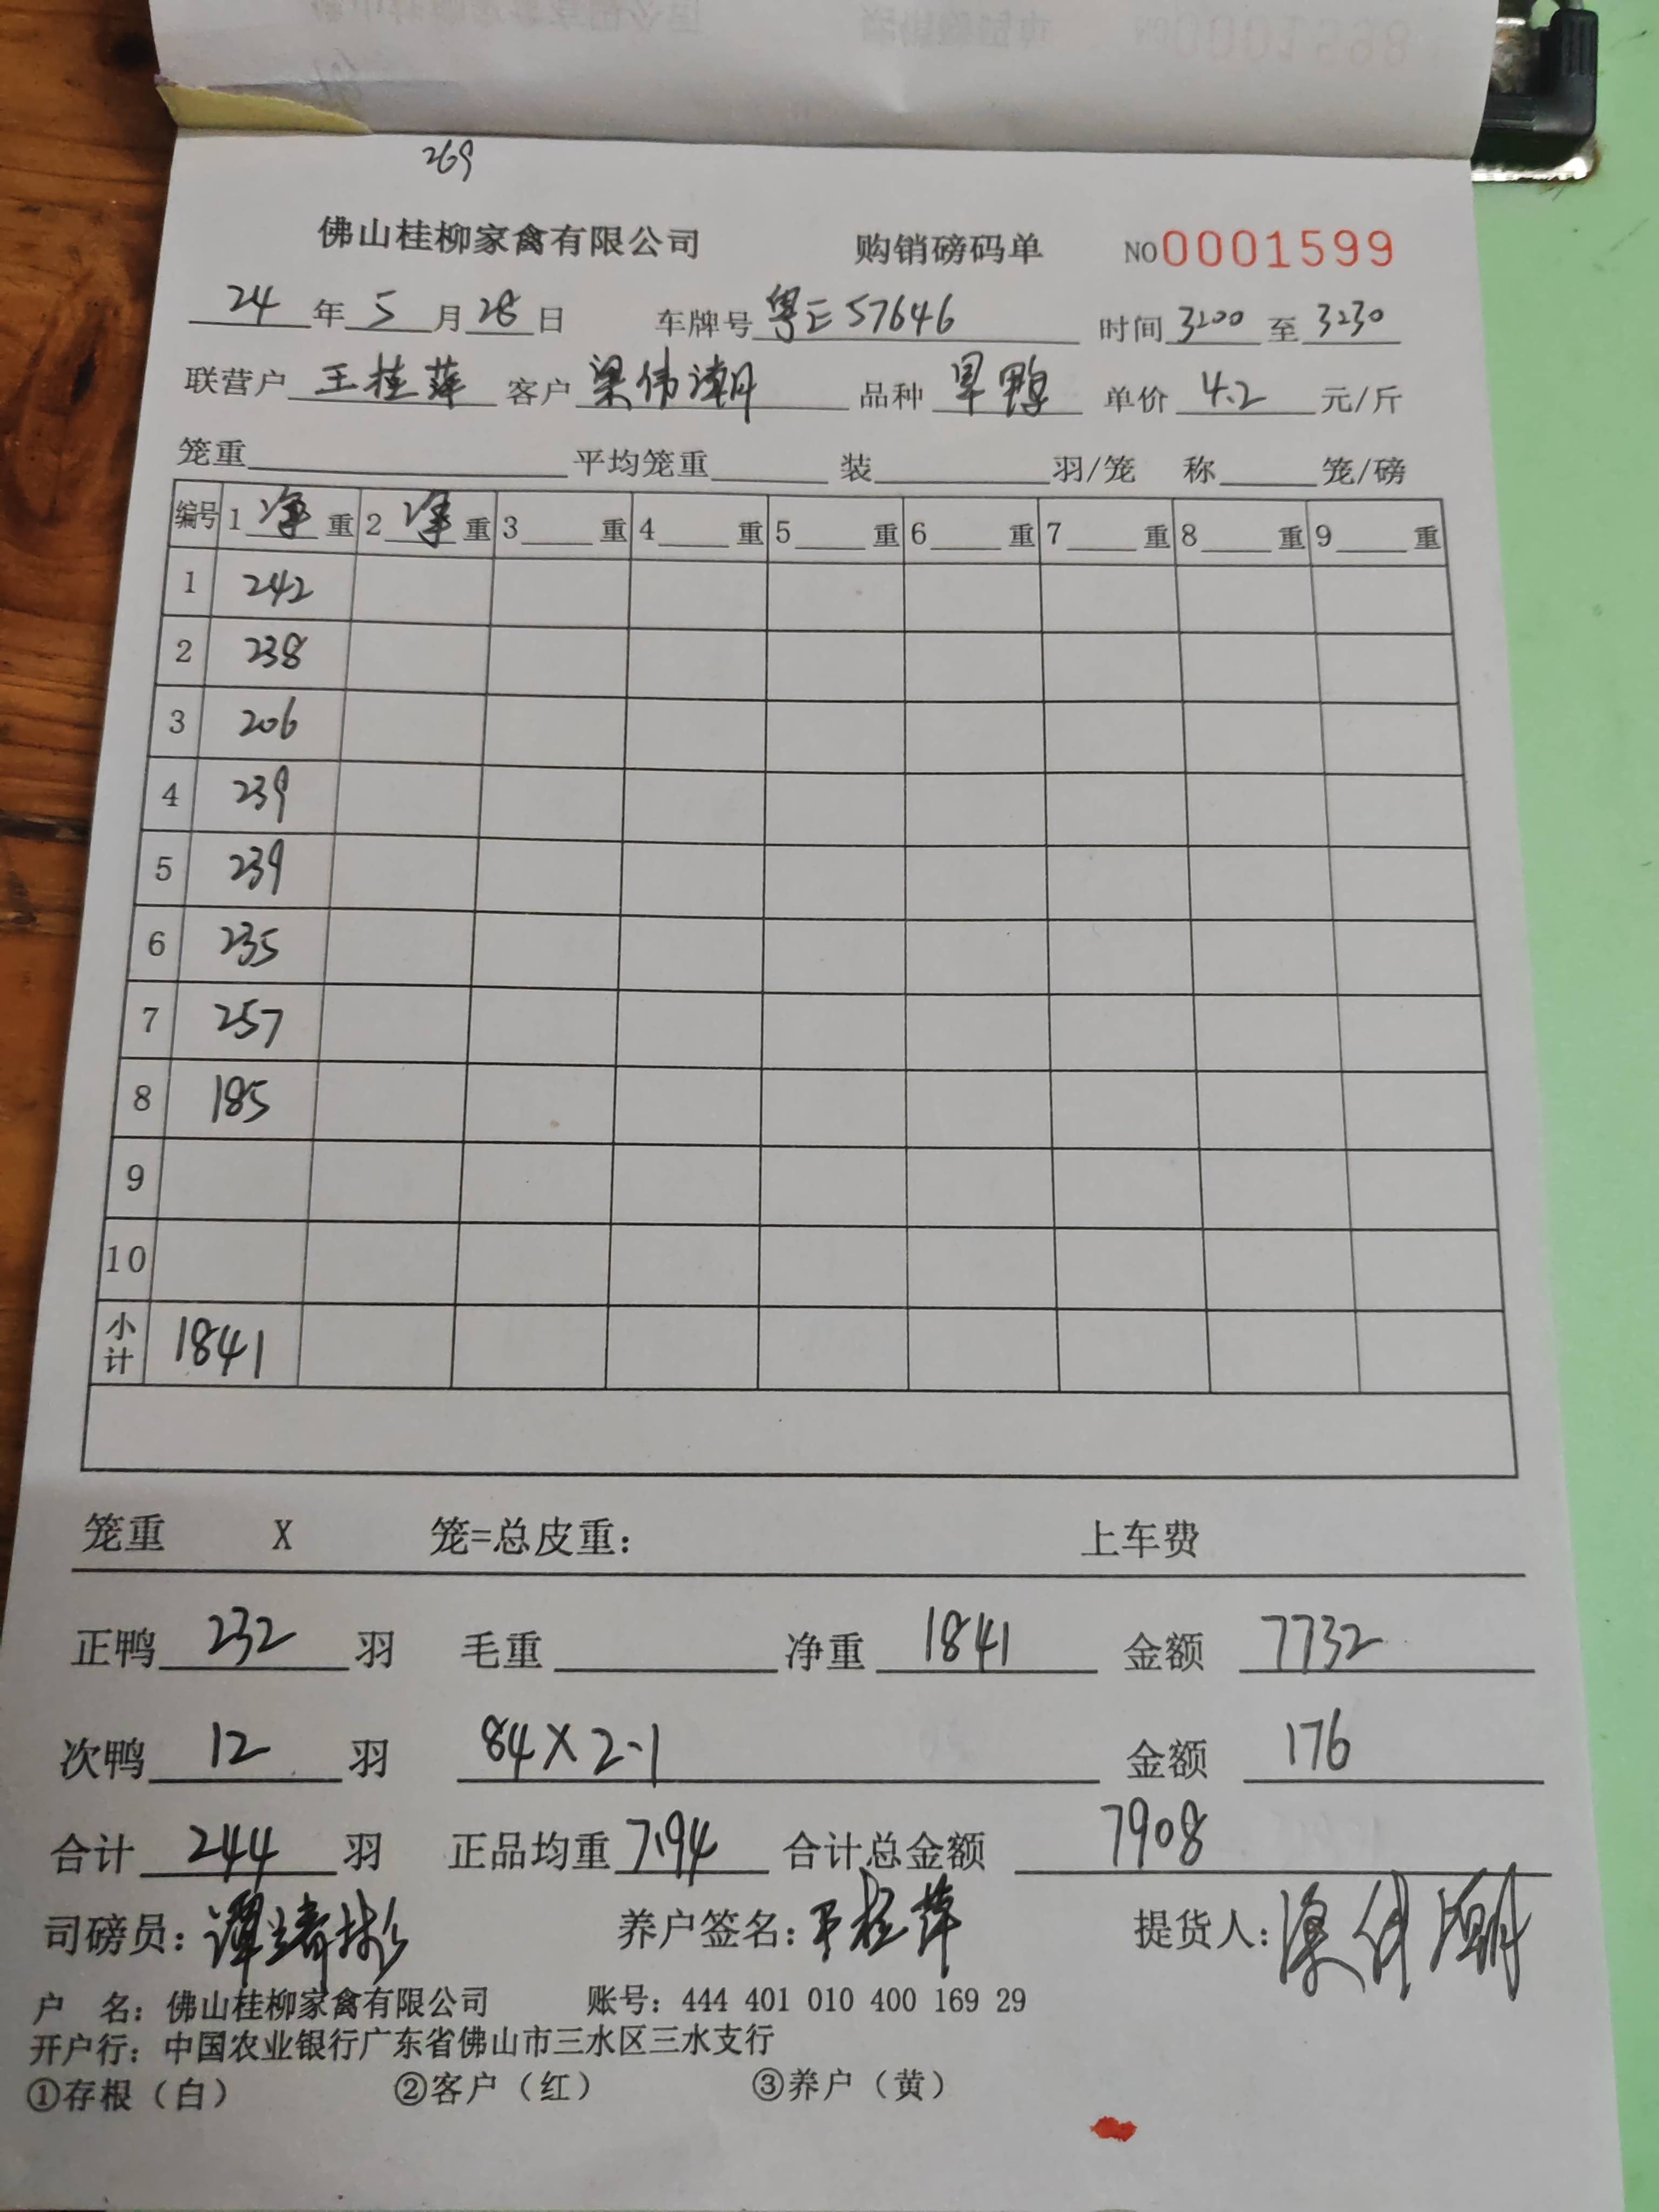 269
佛山桂柳家禽有限公司 购销磅码单 NO0001599
24年5月28日 车牌号粤E57646 时间3200至3230
联营户王桂萍 客户梁伟潮 品种旱鸭 单价4.2元/斤
笼重 平均笼重 装 羽/笼 称 笼/磅
编号 1净重 2净重 3重 4重 5重 6重 7重 8重 9重
1 242
2 238
3 206
4 239
5 239
6 235
7 257
8 185
9
10
小计 1841
笼重 X 笼=总皮重： 上车费
正鸭232羽 毛重 净重1841 金额7732
次鸭12羽 84×2.1 金额176
合计244羽 正品均重7.94 合计总金额7908
司磅员： 养户签名：王桂萍 提货人：梁伟潮
户 名：佛山桂柳家禽有限公司 账号：444 401 010 400 169 29
开户行：中国农业银行广东省佛山市三水区三水支行
①存根（白） ②客户（红） ③养户（黄）